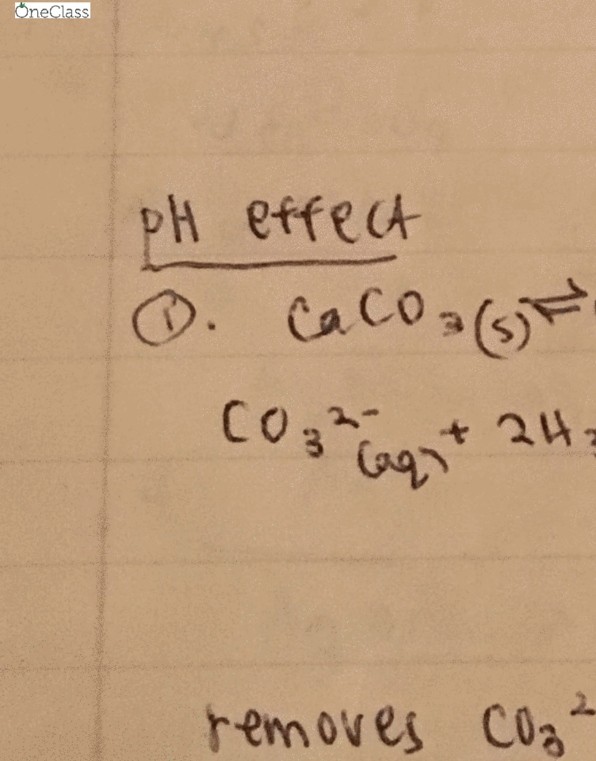 OneClass
pH effect
①. CaCO₃(s) ⇌
CO₃²⁻(aq) + 2H₃
removes CO₃²